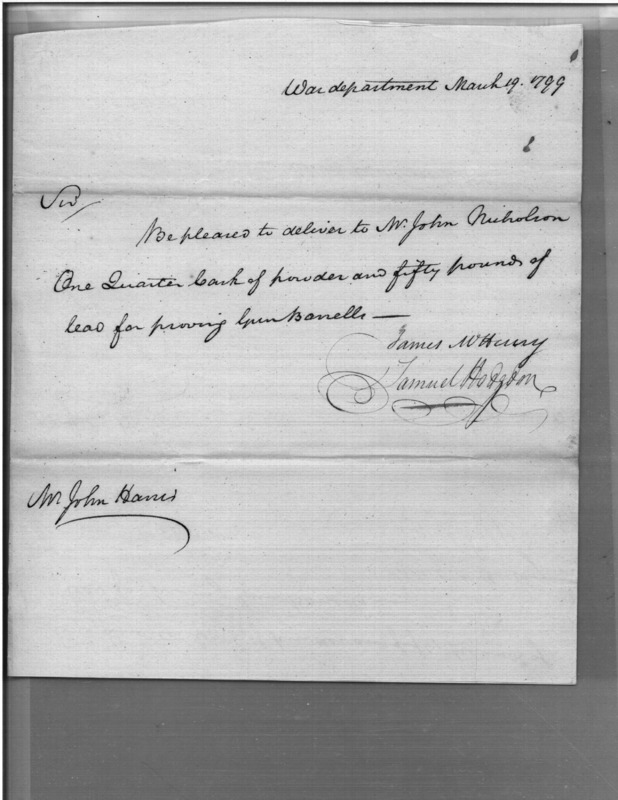 War department March 19. 1799
Sir
Be pleased to deliver to Mr. John Nicholson
One Quarter Cask of powder and fifty pounds of
lead for proving Gun Barrells —
James McHenry
Samuel Hodgdon
Mr John Harris